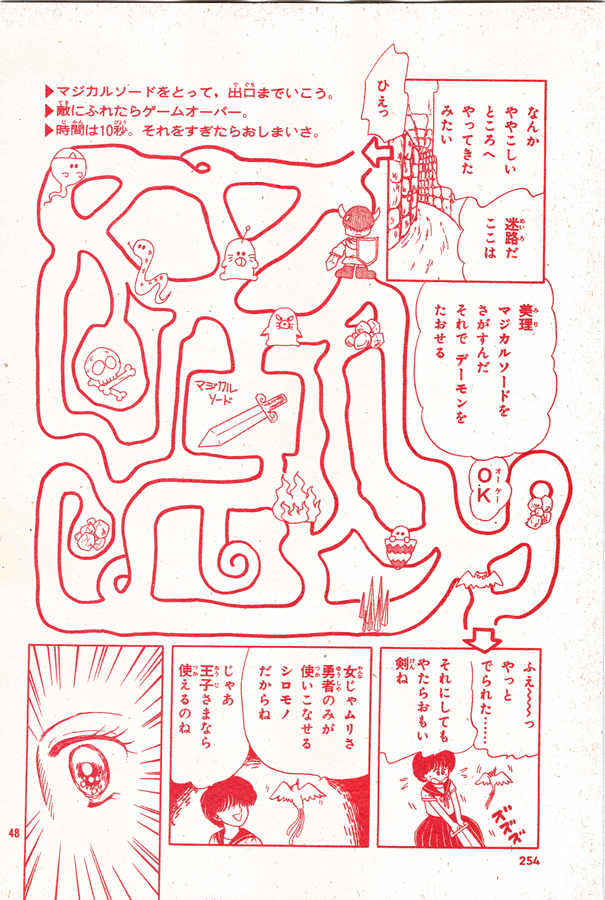 ▶マジカルソードをとって，出口までいこう。
▶敵にふれたらゲームオーバー。
▶時間は10秒。それをすぎたらおしまいさ。
なんか
ややこしい
ところへ
やってきた
みたい
ひえっ
迷路だ
ここは
美理
マジカルソードを
さがすんだ
それで デーモンを
たおせる
OK
マジカル
ソード
ふえ〜〜〜っ
やっと
でられた………
それにしても
やたらおもい
剣ね
ズズズ
女じゃムリさ
勇者のみが
使いこなせる
シロモノ
だからね
じゃあ
王子さまなら
使えるのね
48
254